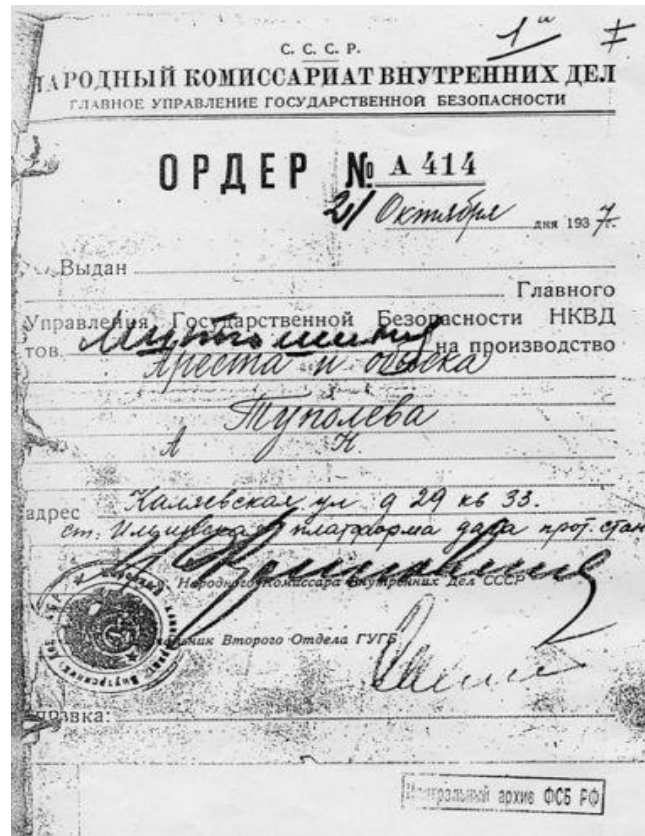 1й
С. С. С. Р.
НАРОДНЫЙ КОМИССАРИАТ ВНУТРЕННИХ ДЕЛ
ГЛАВНОЕ УПРАВЛЕНИЕ ГОСУДАРСТВЕННОЙ БЕЗОПАСНОСТИ
ОРДЕР № А 414
21 Октября дня 1937 г.
Выдан
Главного
Управления Государственной Безопасности НКВД
тов. на производство
Ареста и обыска
Туполева
А Н
адрес Каляевская ул д 29 кв 33.
ст. платформа дача прот. стан
Народного Комиссара Внутренних Дел СССР
Второго Отдела ГУГБ
Центральный архив ФСБ РФ